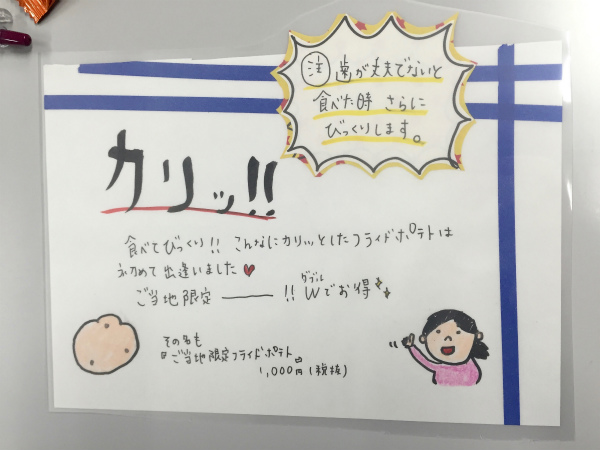 注 歯が丈夫でないと
食べた時 さらに
びっくりします。
カリッ!!
食べてびっくり!! こんなにカリッとしたフライドポテトは
初めて出逢いました♥
ご当地限定 ―――!! Wでお得
ダブル
その名も
ご当地限定フライドポテト
1,000円(税抜)